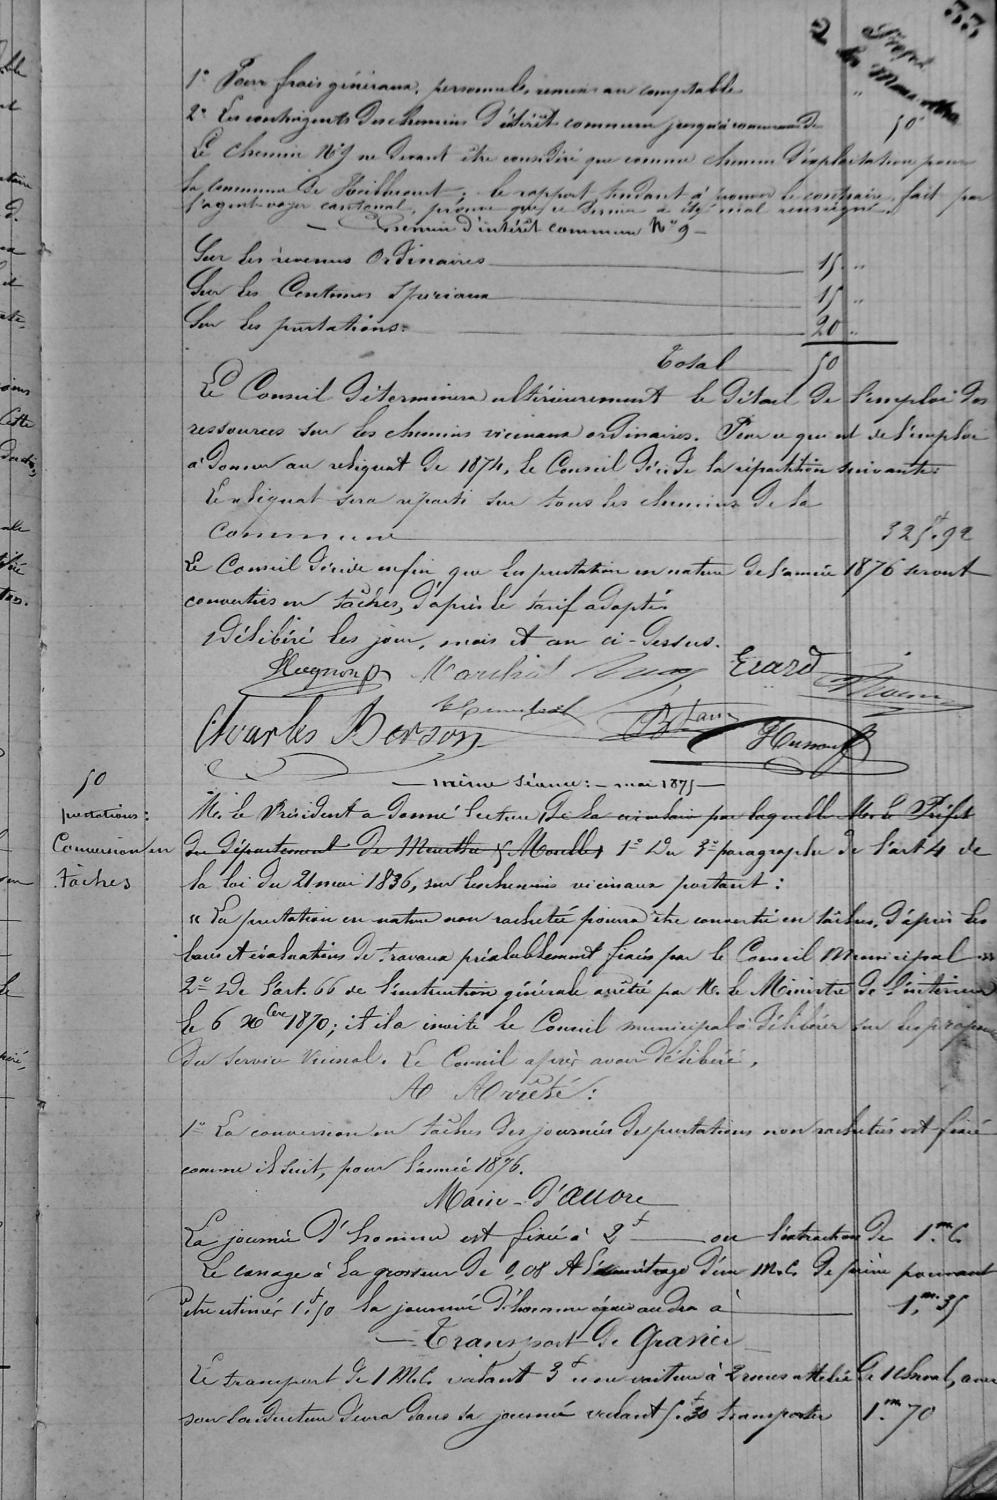 33
2
1° Pour frais généraux, personnels, remises au comptable "
2° Les contingents des chemins d'intérêt commun jusqu'à concurrence de 50
Le chemin N° 9 ne devant être considéré que comme chemin d'exploitation pour
la commune de ; le rapport tendant à prouver le contraire, fait par
l'agent-voyer cantonal, prouve que ce dernier a été mal renseigné.
— Chemin d'intérêt commun N° 9 —
Sur les revenus Ordinaires 15 "
Sur les Centimes spéciaux 15 "
Sur les prestations 20 "
Total 50
Le Conseil déterminera ultérieurement le détail de l'emploi des
ressources sur les chemins vicinaux ordinaires. Pour ce qui est de l'emploi
à donner au reliquat de 1874, le Conseil décide la répartition suivante:
Le reliquat sera réparti sur tous les chemins de la
Commune 325f.92
Le Conseil décide enfin que les prestation en nature de l'année 1876 seront
converties en tâches, d'après le tarif adopté.
Délibéré les jour, mois et an ci-dessus.
Marchal Erard
Charles Berson
— même séance: — mai 1875 —
50
prestations:
Conversion en
tâches
Mr. le Président a donné lecture, De la circulaire par laquelle Mr. le Préfet
du département de Meurthe & Moselle, 1° Du 3e paragraphe de l'art 4 de
la loi du 21 mai 1836, sur les chemins vicinaux portant:
"La prestation en nature non rachetée pourra être convertie en tâches, d'après les
bases et évaluations de travaux préalablement fixées par le Conseil Municipal"
2° De l'art. 66 de l'instruction générale arrêtée par M. le Ministre de l'intérieur
le 6 Xbre 1870; et il a invité le Conseil municipal à délibérer sur les propos
du Service Vicinal. Le Conseil après avoir délibéré,
A Arrêté:
1° La conversion en tâches des journées de prestations non rachetées est fixée
comme il suit, pour l'année 1876.
Main-d'œuvre
La journée d'homme est fixée à 2f — ou l'extraction de 1m.C
Le cassage à la grosseur de 0,08 et l'emmétrage d'un M.C. de pouvant
être estimés 1f.50 la journée d'homme équivaudra à 1m.35
— Transport de Gravier
Le transport de 1 M.C. valant 3f une voiture à 2 roues attelée de 1 cheval, avec
son conducteur devra dans sa journée valant 5f.30 transporter 1m.70